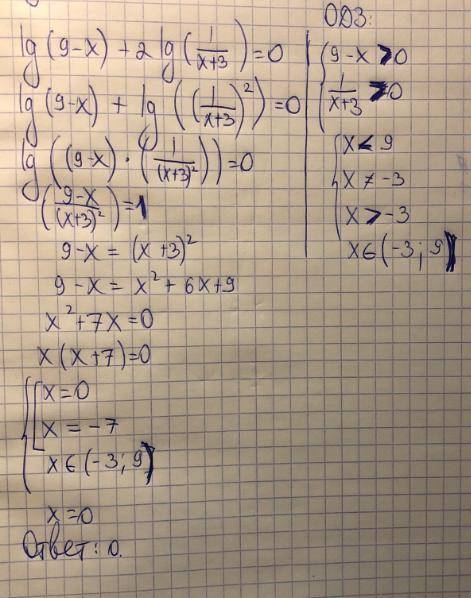 lg(9-x) + 2 lg(1/(x+3)) = 0
lg(9-x) + lg((1/(x+3))²) = 0
lg((9-x) · (1/(x+3)²)) = 0
((9-x)/(x+3)²) = 1
9-x = (x+3)²
9-x = x² + 6x + 9
x² + 7x = 0
x(x+7) = 0
x = 0
x = -7
x ∈ (-3; 9)
x = 0
Ответ: 0.
ОДЗ:
9-x > 0
1/(x+3) > 0
x < 9
x ≠ -3
x > -3
x ∈ (-3; 9)